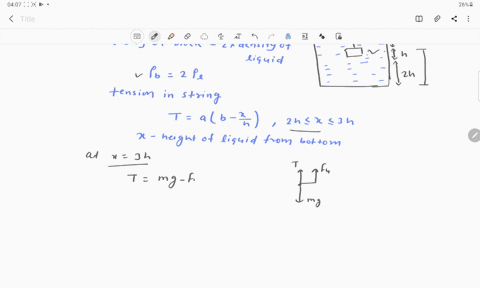 04:07
26%
Title
density of
liquid
✓ ρb = 2 ρl
h
2h
tension in string
T = a(b - x/h) , 2h ≤ x ≤ 3h
x - height of liquid from bottom
at x = 3h
T = mg - f
T
mg